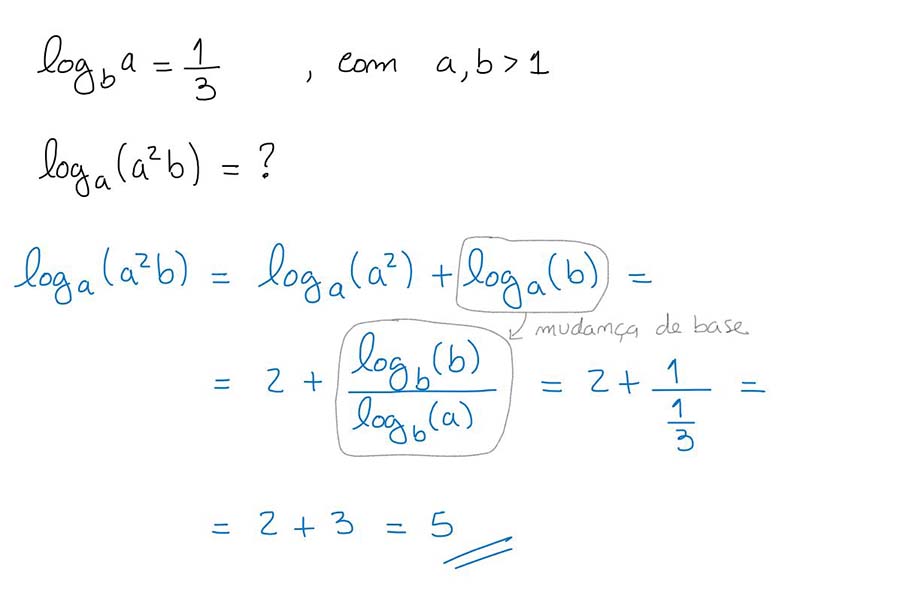 log_b a = 1/3 , com a, b > 1
log_a(a²b) = ?
log_a(a²b) = log_a(a²) + log_a(b) =
mudança de base
= 2 + log_b(b)/log_b(a) = 2 + 1/(1/3) =
= 2 + 3 = 5